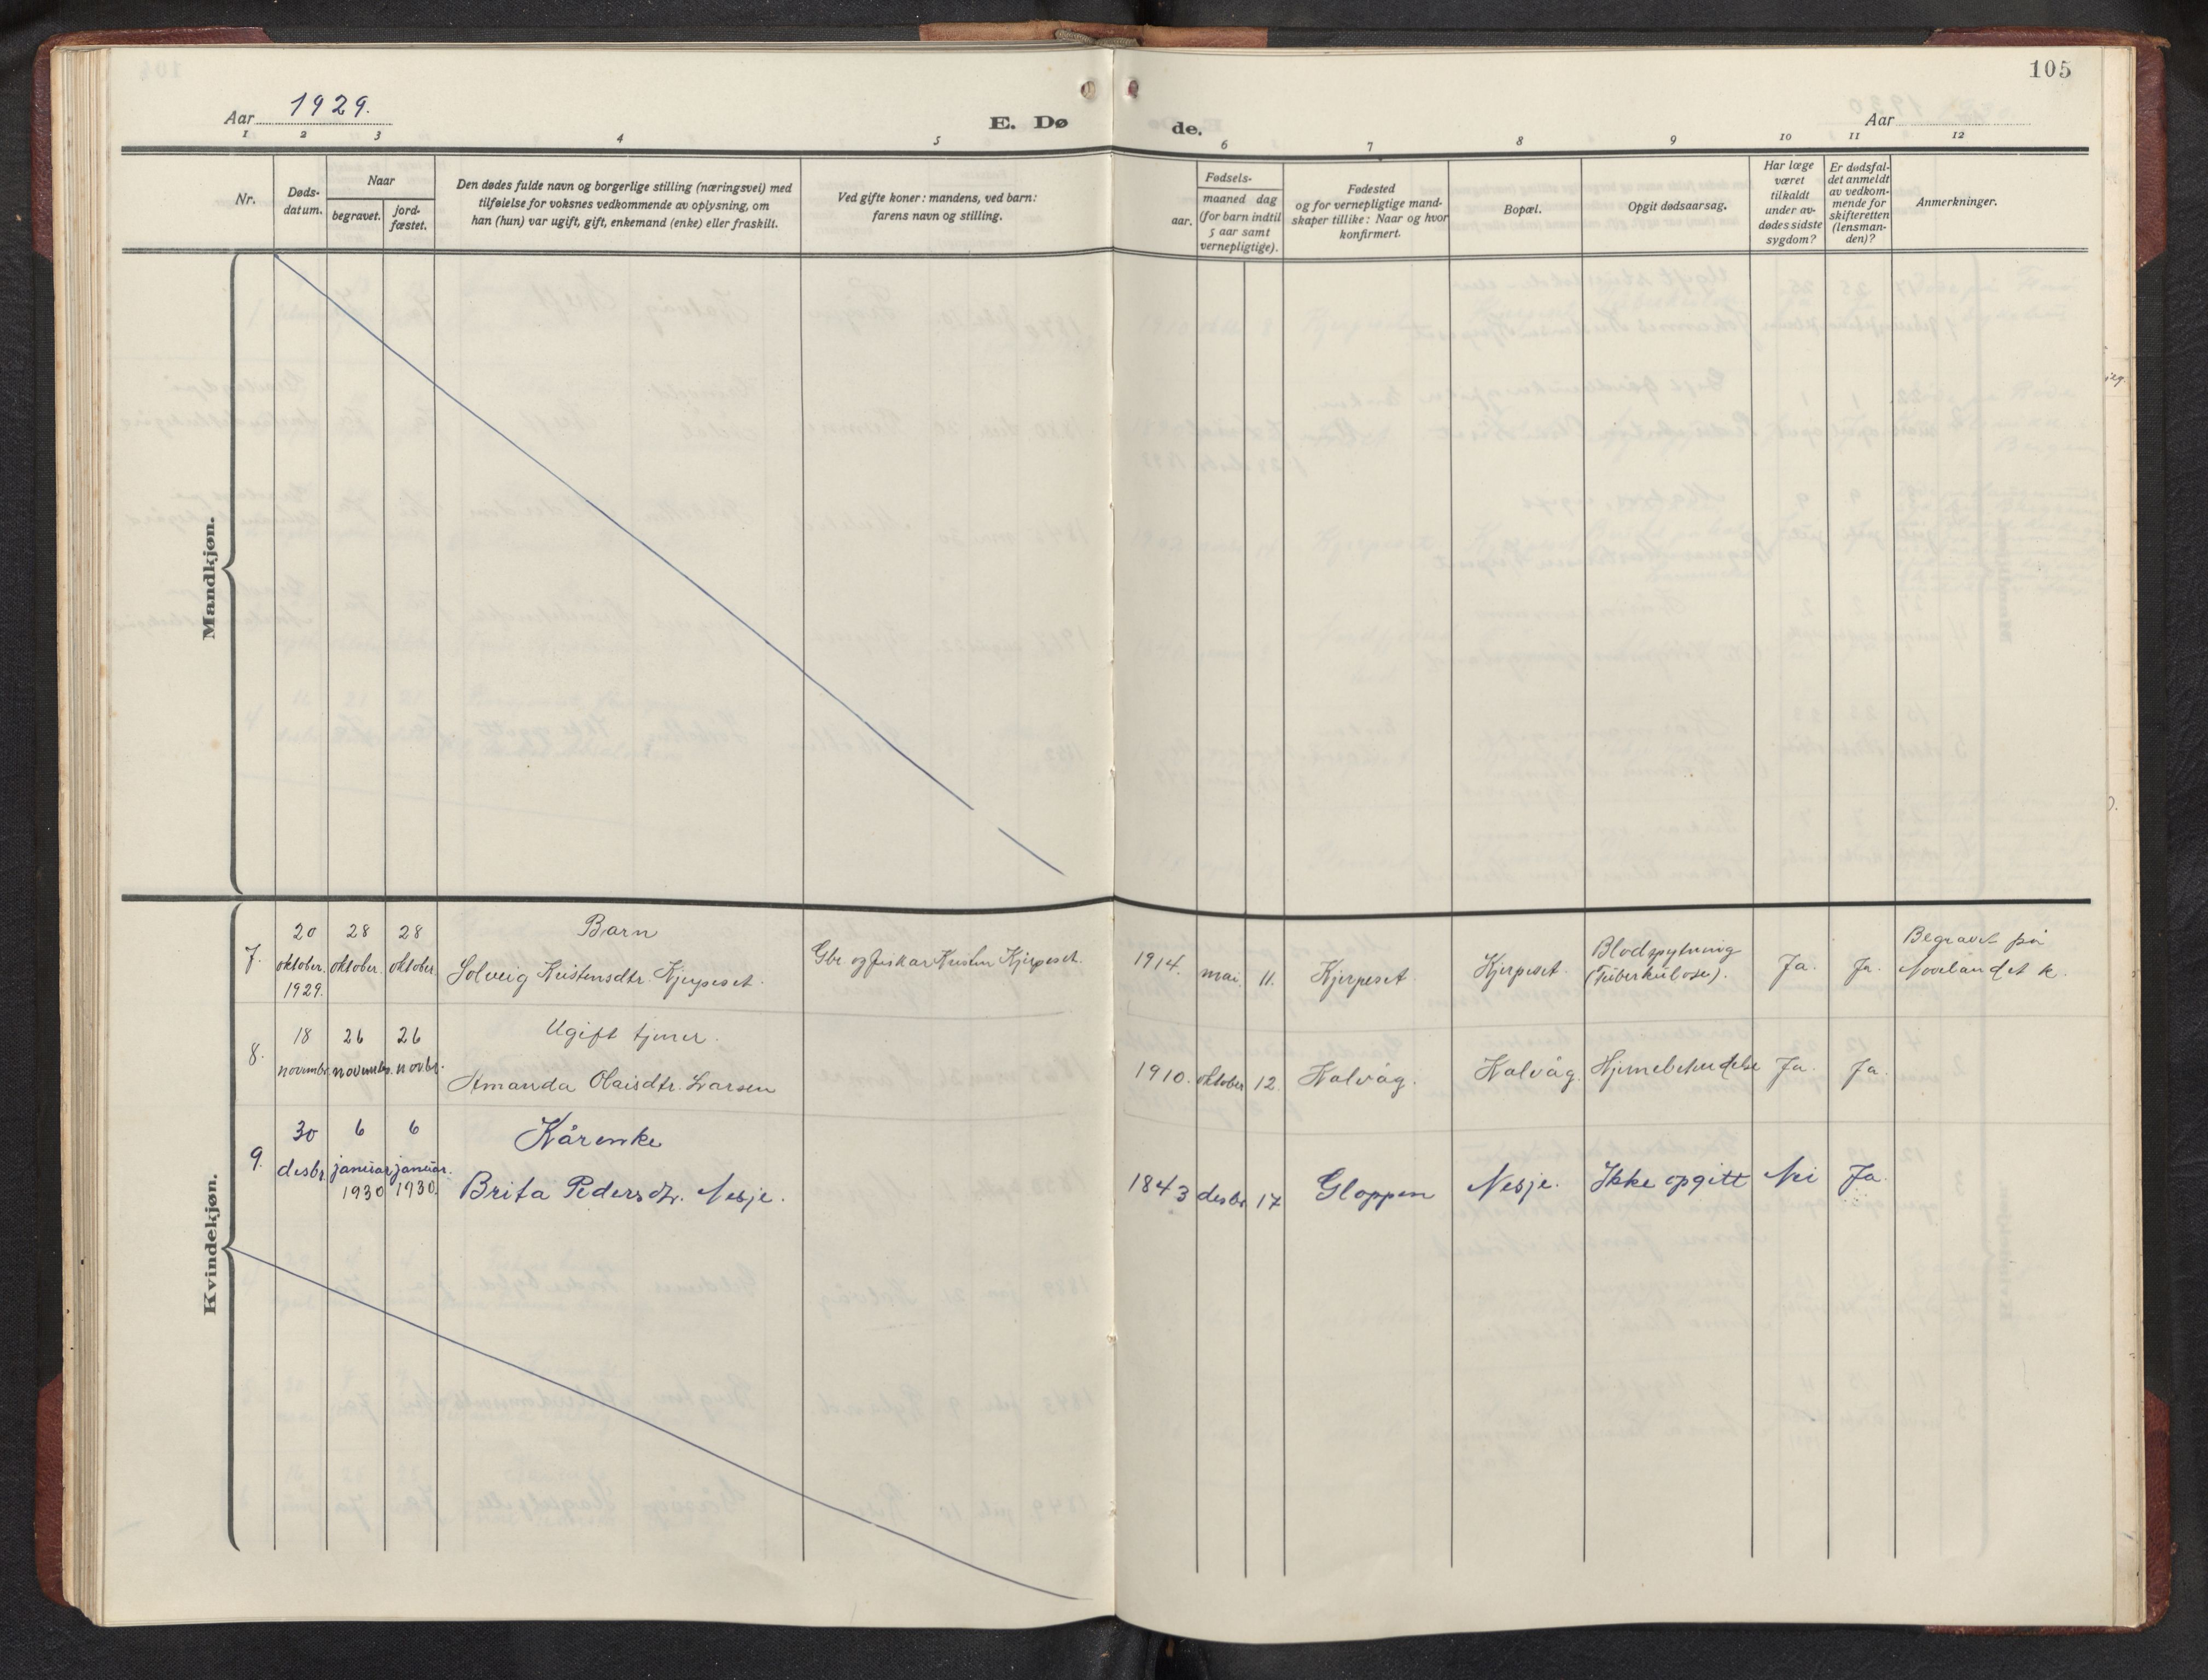 105
Aar 1929.
E. Døde.
Aar
1 2 3 4 5 6 7 8 9 10 11 12
Nr.
Døds-
datum.
Naar
begravet.
jord-
fæstet.
Den dødes fulde navn og borgerlige stilling (næringsvei) med
tilføielse for voksnes vedkommende av oplysning, om
han (hun) var ugift, gift, enkemand (enke) eller fraskilt.
Ved gifte koner: mandens, ved barn:
farens navn og stilling.
Fødsels-
aar.
maaned dag
(for barn indtil
5 aar samt
vernepligtige).
Fødested
og for vernepligtige mand-
skaper tillike: Naar og hvor
konfirmert.
Bopæl.
Opgit dødsaarsag.
Har læge
været
tilkaldt
under av-
dødes sidste
sygdom?
Er dødsfal-
det anmeldt
av vedkom-
mende for
skifteretten
(lensman-
den)?
Anmerkninger.
Mandkjøn.
Kvindekjøn.
7.
20
oktober.
1929.
28
oktober.
28
oktober.
Barn
Solveig Kristensdtr. Kjerpeset.
Gbr. og fiskar Kristen Kjerpeset.
1914. mai. 11. Kjerpeset Kjerpeset.
Blodspytning
(Tuberkulose).
Ja. Ja.
Begravet på
Hovelandet k.
8.
18
novembr.
26
novembr.
26
novbr.
Ugift tjener.
Amanda Olaisdtr. Larsen
1910. oktober 12. Kalvåg. Kalvåg. Hjernebetendelse Ja. Ja.
9.
30
desbr.
6
januar
1930
6
januar.
1930.
Kårenke
Brita Pedersdtr. Nesje.
1843 desbr. 17 Gloppen Nesje. Ikke opgitt Nei Ja.